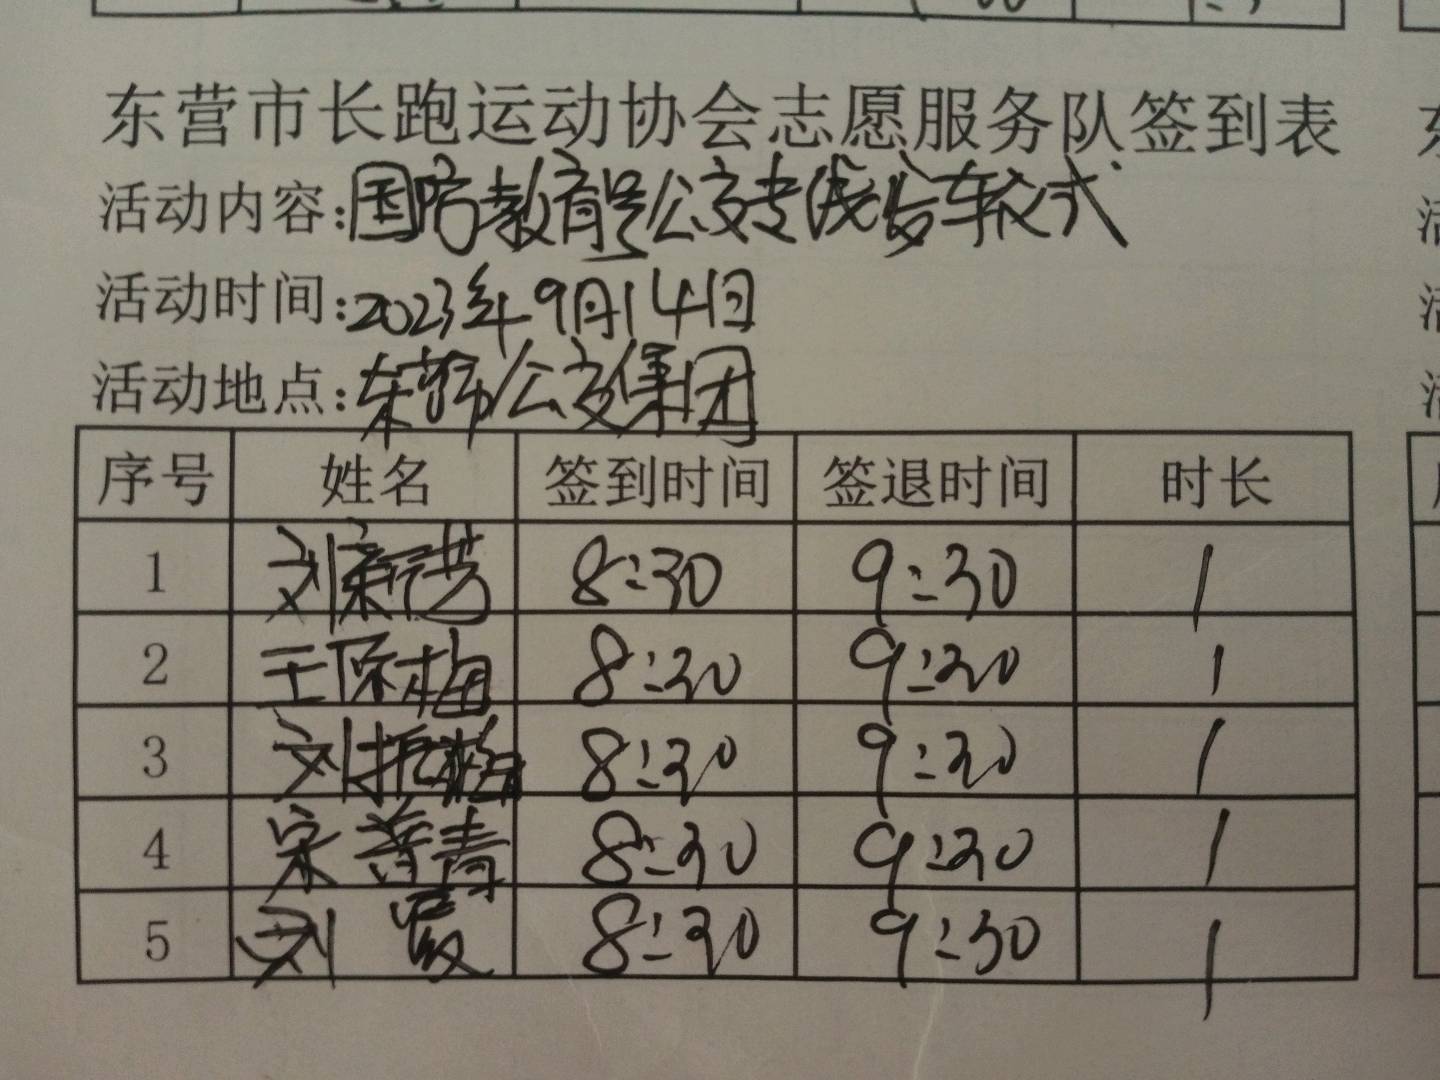 东营市长跑运动协会志愿服务队签到表
活动内容:国防教育号公交专线发车仪式
活动时间:2023年9月14日
活动地点:东营市公交集团
序号 姓名 签到时间 签退时间 时长
1 刘 8:30 9:30 1
2 王保梅 8:30 9:30 1
3 刘振梅 8:30 9:30 1
4 宋 青 8:30 9:30 1
5 刘 霞 8:30 9:30 1